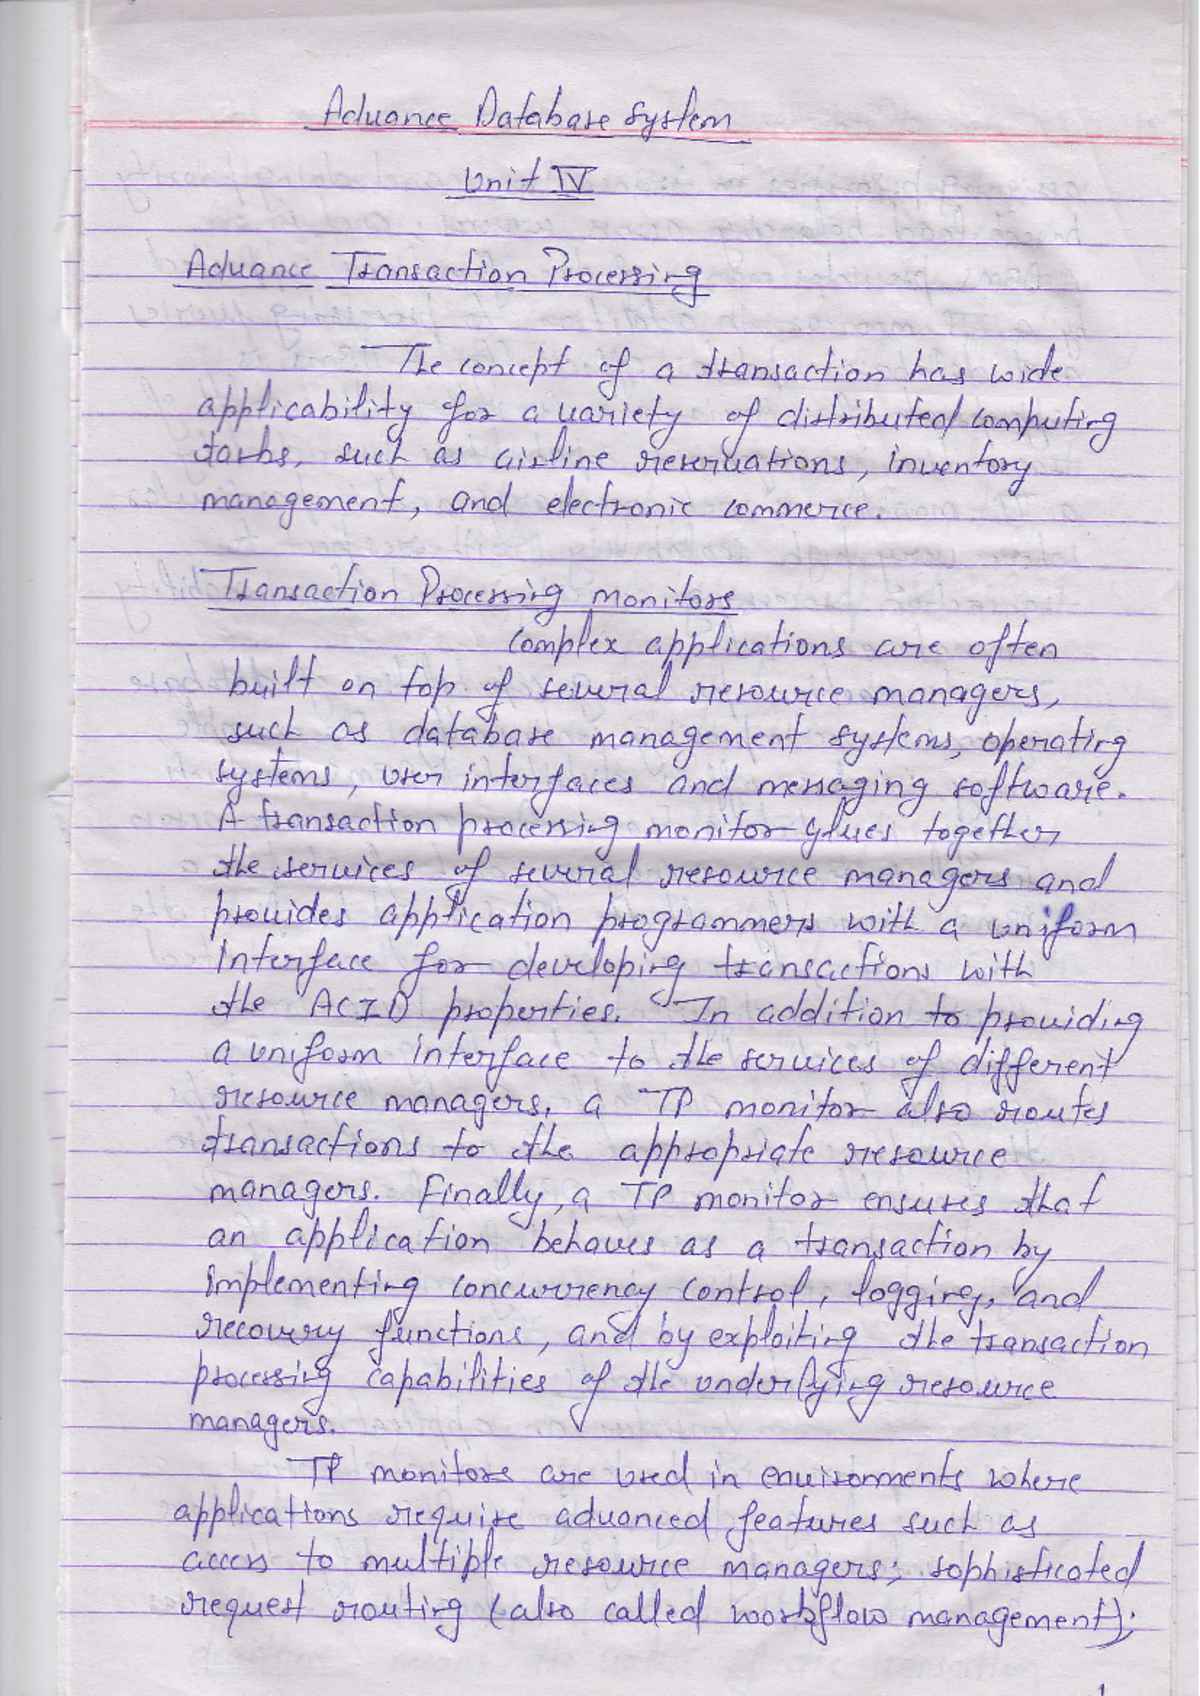 Advance Database System
Unit IV
Advance Transaction Processing
The concept of a transaction has wide
applicability for a variety of distributed computing
tasks, such as airline reservations, inventory
management, and electronic commerce.
Transaction Processing monitors
Complex applications are often
built on top of several resource managers,
such as database management systems, operating
systems, user interfaces and messaging software.
A transaction processing monitor glues together
the services of several resource managers and
provides application programmers with a uniform
interface for developing transactions with
the ACID properties. In addition to providing
a uniform interface to the services of different
resource managers, a TP monitor also routes
transactions to the appropriate resource
managers. Finally, a TP monitor ensures that
an application behaves as a transaction by
implementing concurrency control, logging, and
recovery functions, and by exploiting the transaction
processing capabilities of the underlying resource
managers.
TP monitors are used in environments where
applications require advanced features such as
access to multiple resource managers; sophisticated
request routing (also called workflow management);